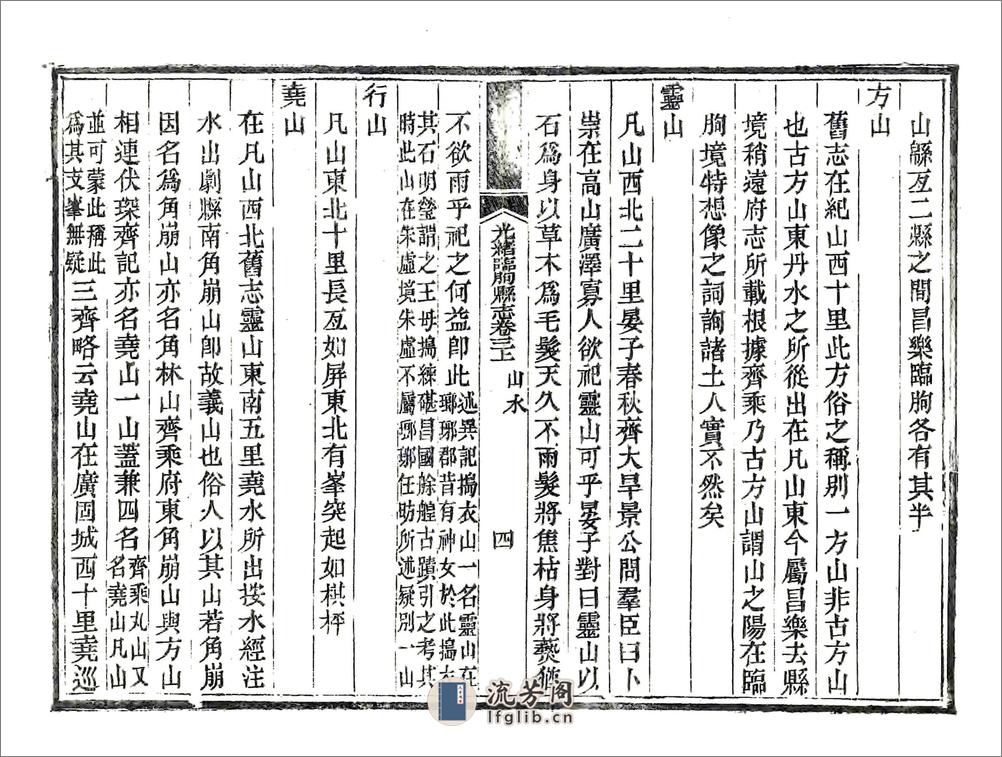 山緜亙二縣之間昌樂臨朐各有其半
方山
舊志在紀山西十里此方俗之稱別一方山非古方山
也古方山東丹水之所從出在凡山東今屬昌樂去縣
境稍遠府志所載根據齊乘乃古方山謂山之陽在臨
朐境特想像之詞詢諸土人實不然矣
靈山
凡山西北二十里晏子春秋齊大旱景公問羣臣曰卜
崇在高山廣澤寡人欲祀靈山可乎晏子對曰靈山以
石爲身以草木爲毛髮天久不雨髮將焦枯身將爇
光緒臨朐縣志卷三上 山水 四
不欲雨乎祀之何益卽此
述異記搗衣山一名靈山在
瑯琊郡昔有神女於此搗衣
其石明瑩謂之玉女搗練碪昌國艅艎古蹟引之考其
時此山在朱虛境朱虛不屬瑯琊任昉所述疑別一山
行山
凡山東北十里長亙如屏東北有峯突起如棋枰
堯山
在凡山西北舊志靈山東南五里堯水所出按水經注
水出劇縣南角崩山卽故義山也俗人以其山若角崩
因名爲角崩山亦名角林山齊乘府東角崩山與方山
相連伏琛齊記亦名堯山一山蓋兼四名
齊乘丸山又
名堯山凡山
並可蒙此稱此
爲其支峯無疑
三齊略云堯山在廣固城西十里堯巡
流芳阁
lfglib.cn